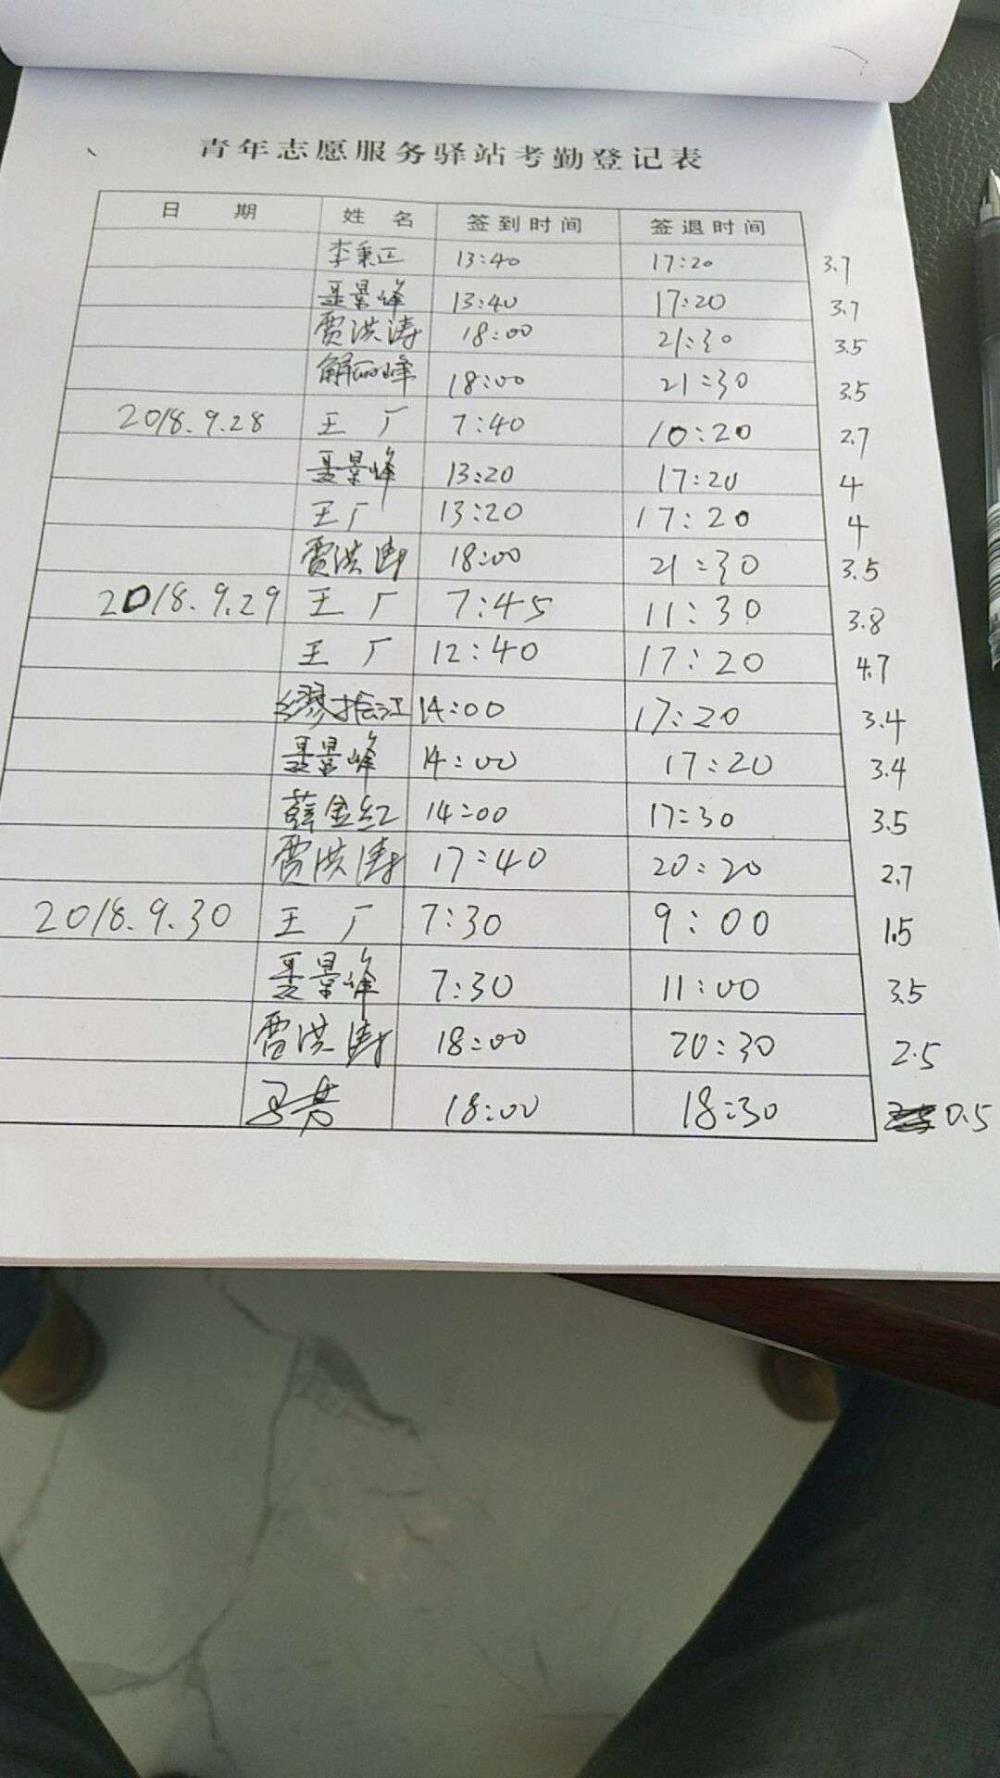 青年志愿服务驿站考勤登记表
日 期 姓 名 签到时间 签退时间
李秉正 13:40 17:20 3.7
聂景峰 13:40 17:20 3.7
贾洪涛 18:00 21:30 3.5
解 峰 18:00 21:30 3.5
2018.9.28 王 厂 7:40 10:20 2.7
聂景峰 13:20 17:20 4
王厂 13:20 17:20 4
贾洪涛 18:00 21:30 3.5
2018.9.29 王 厂 7:45 11:30 3.8
王 厂 12:40 17:20 4.7
缪 江 14:00 17:20 3.4
聂景峰 14:00 17:20 3.4
薛金红 14:00 17:30 3.5
贾洪涛 17:40 20:20 2.7
2018.9.30 王 厂 7:30 9:00 1.5
聂景峰 7:30 11:00 3.5
贾洪涛 18:00 20:30 2.5
18:00 18:30 0.5